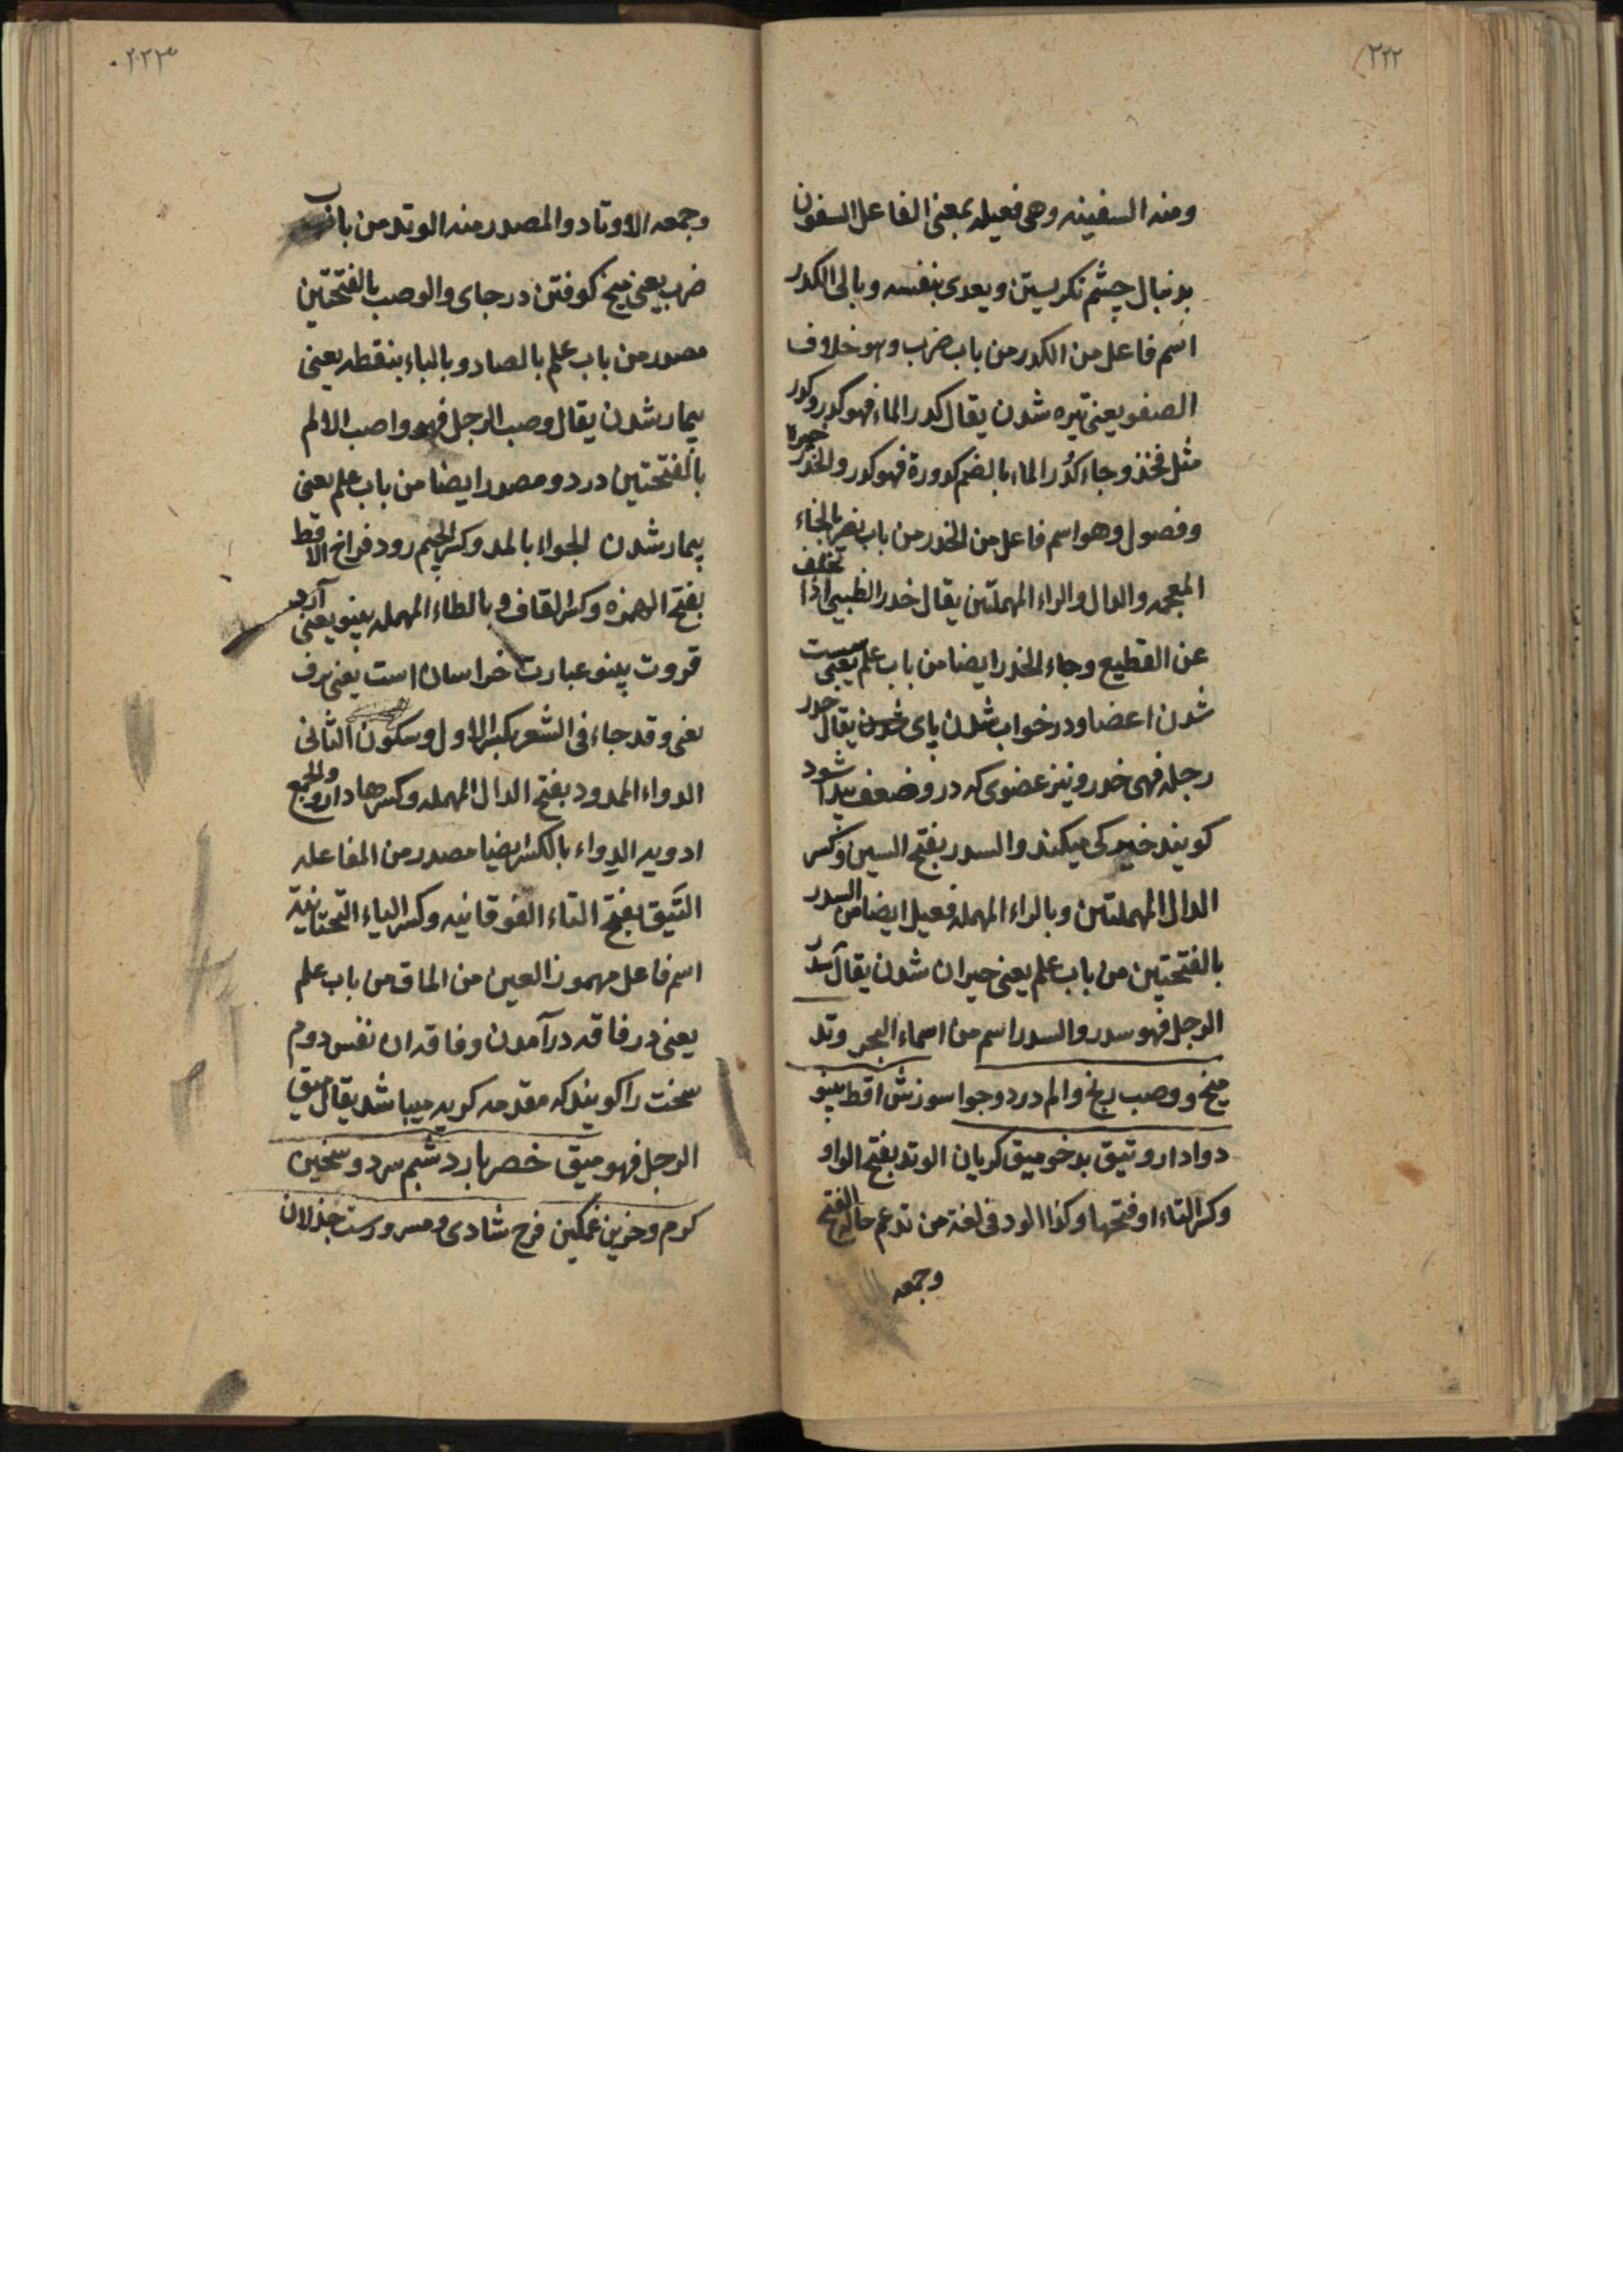 ۲۲۲
ومنه السفینه وهی فعیله بمعنی الفاعل السفون
بدنبال چشم نکریستن ویعدی بنفسه وبالی الکدر
اسم فاعل من الکدر من باب ضرب وهو خلاف
الصفو یعنی تیره شدن یقال کدر الماء فهو کدر وکدر
مثل فخذ وجاء کدُر الماء بالضم کدورة فهو کدر والخدر
وفصول وهو اسم فاعل من الخدر من باب نصر بالخاء
المعجمه والدال والراء المهملتین یقال خدر الظبی اذا تخلف
عن القطیع وجاء الخدر ایضا من باب علم یعنی سست
شدن اعضا ودر خواب شدن پای شدن یقال خدر
رجله فهی خدر ونیز عضوی که درو ضعف پیدا شود
کویند خیرکی میکند والسدر بفتح السین وکسر
الدال المهملتین وبالراء المهمله فعیل ایضا من السدر
بالفتحتین من باب علم یعنی حیران شدن یقال سدر
الرجل فهو سدر والسدر اسم من اسماء البحر وتد
میخ ووصب رنج والم درد وجوا سوزش اقط پینو
دوا دارو وتیق بدخو میق کریان الوتد بفتح الواو
وکسر التاء او فتحها وکذا الود فی لغة من تدغم حالة الفتح
وجمعه
۲۲۳
وجمعه الاوتاد والمصدر منه الوتد من باب
ضرب یعنی میخ کوفتن در جای والوصب بالفتحتین
مصدر من باب علم بالصاد وبالباء بنقطه یعنی
بیمار شدن یقال وصب الرجل فهو واصب الالم
بالفتحتین درد ومصدر ایضا من باب علم یعنی
بیمار شدن الجواء بالمد وکسر الجیم رود فراخ الاقط
بفتح الهمزه وکسر القاف وبالطاء المهمله پینو یعنی آرد
قروت پینو عبارت خراسان است یعنی ترف
یعنی وقد جاء فی الشعر بکسر الاول وسکون الثانی
الدواء الممدود بفتح الدال المهمله وکسرها دارو والجمع
ادویه الدواء بالکسر ایضا مصدر من المفاعله
التیق بفتح التاء الفوقانیه وکسر الیاء التحتانیة
اسم فاعل مهموز العین من الماق من باب علم
یعنی در فاقه درآمدن وفاقه ان نفس دوم
سخت را کویند که مقدمه کریه میباشد یقال میق
الرجل فهو میق خصر بارد شبم سرد وسخین
کرم وحزین غمکین فرح شادی ومسرورست جذلان